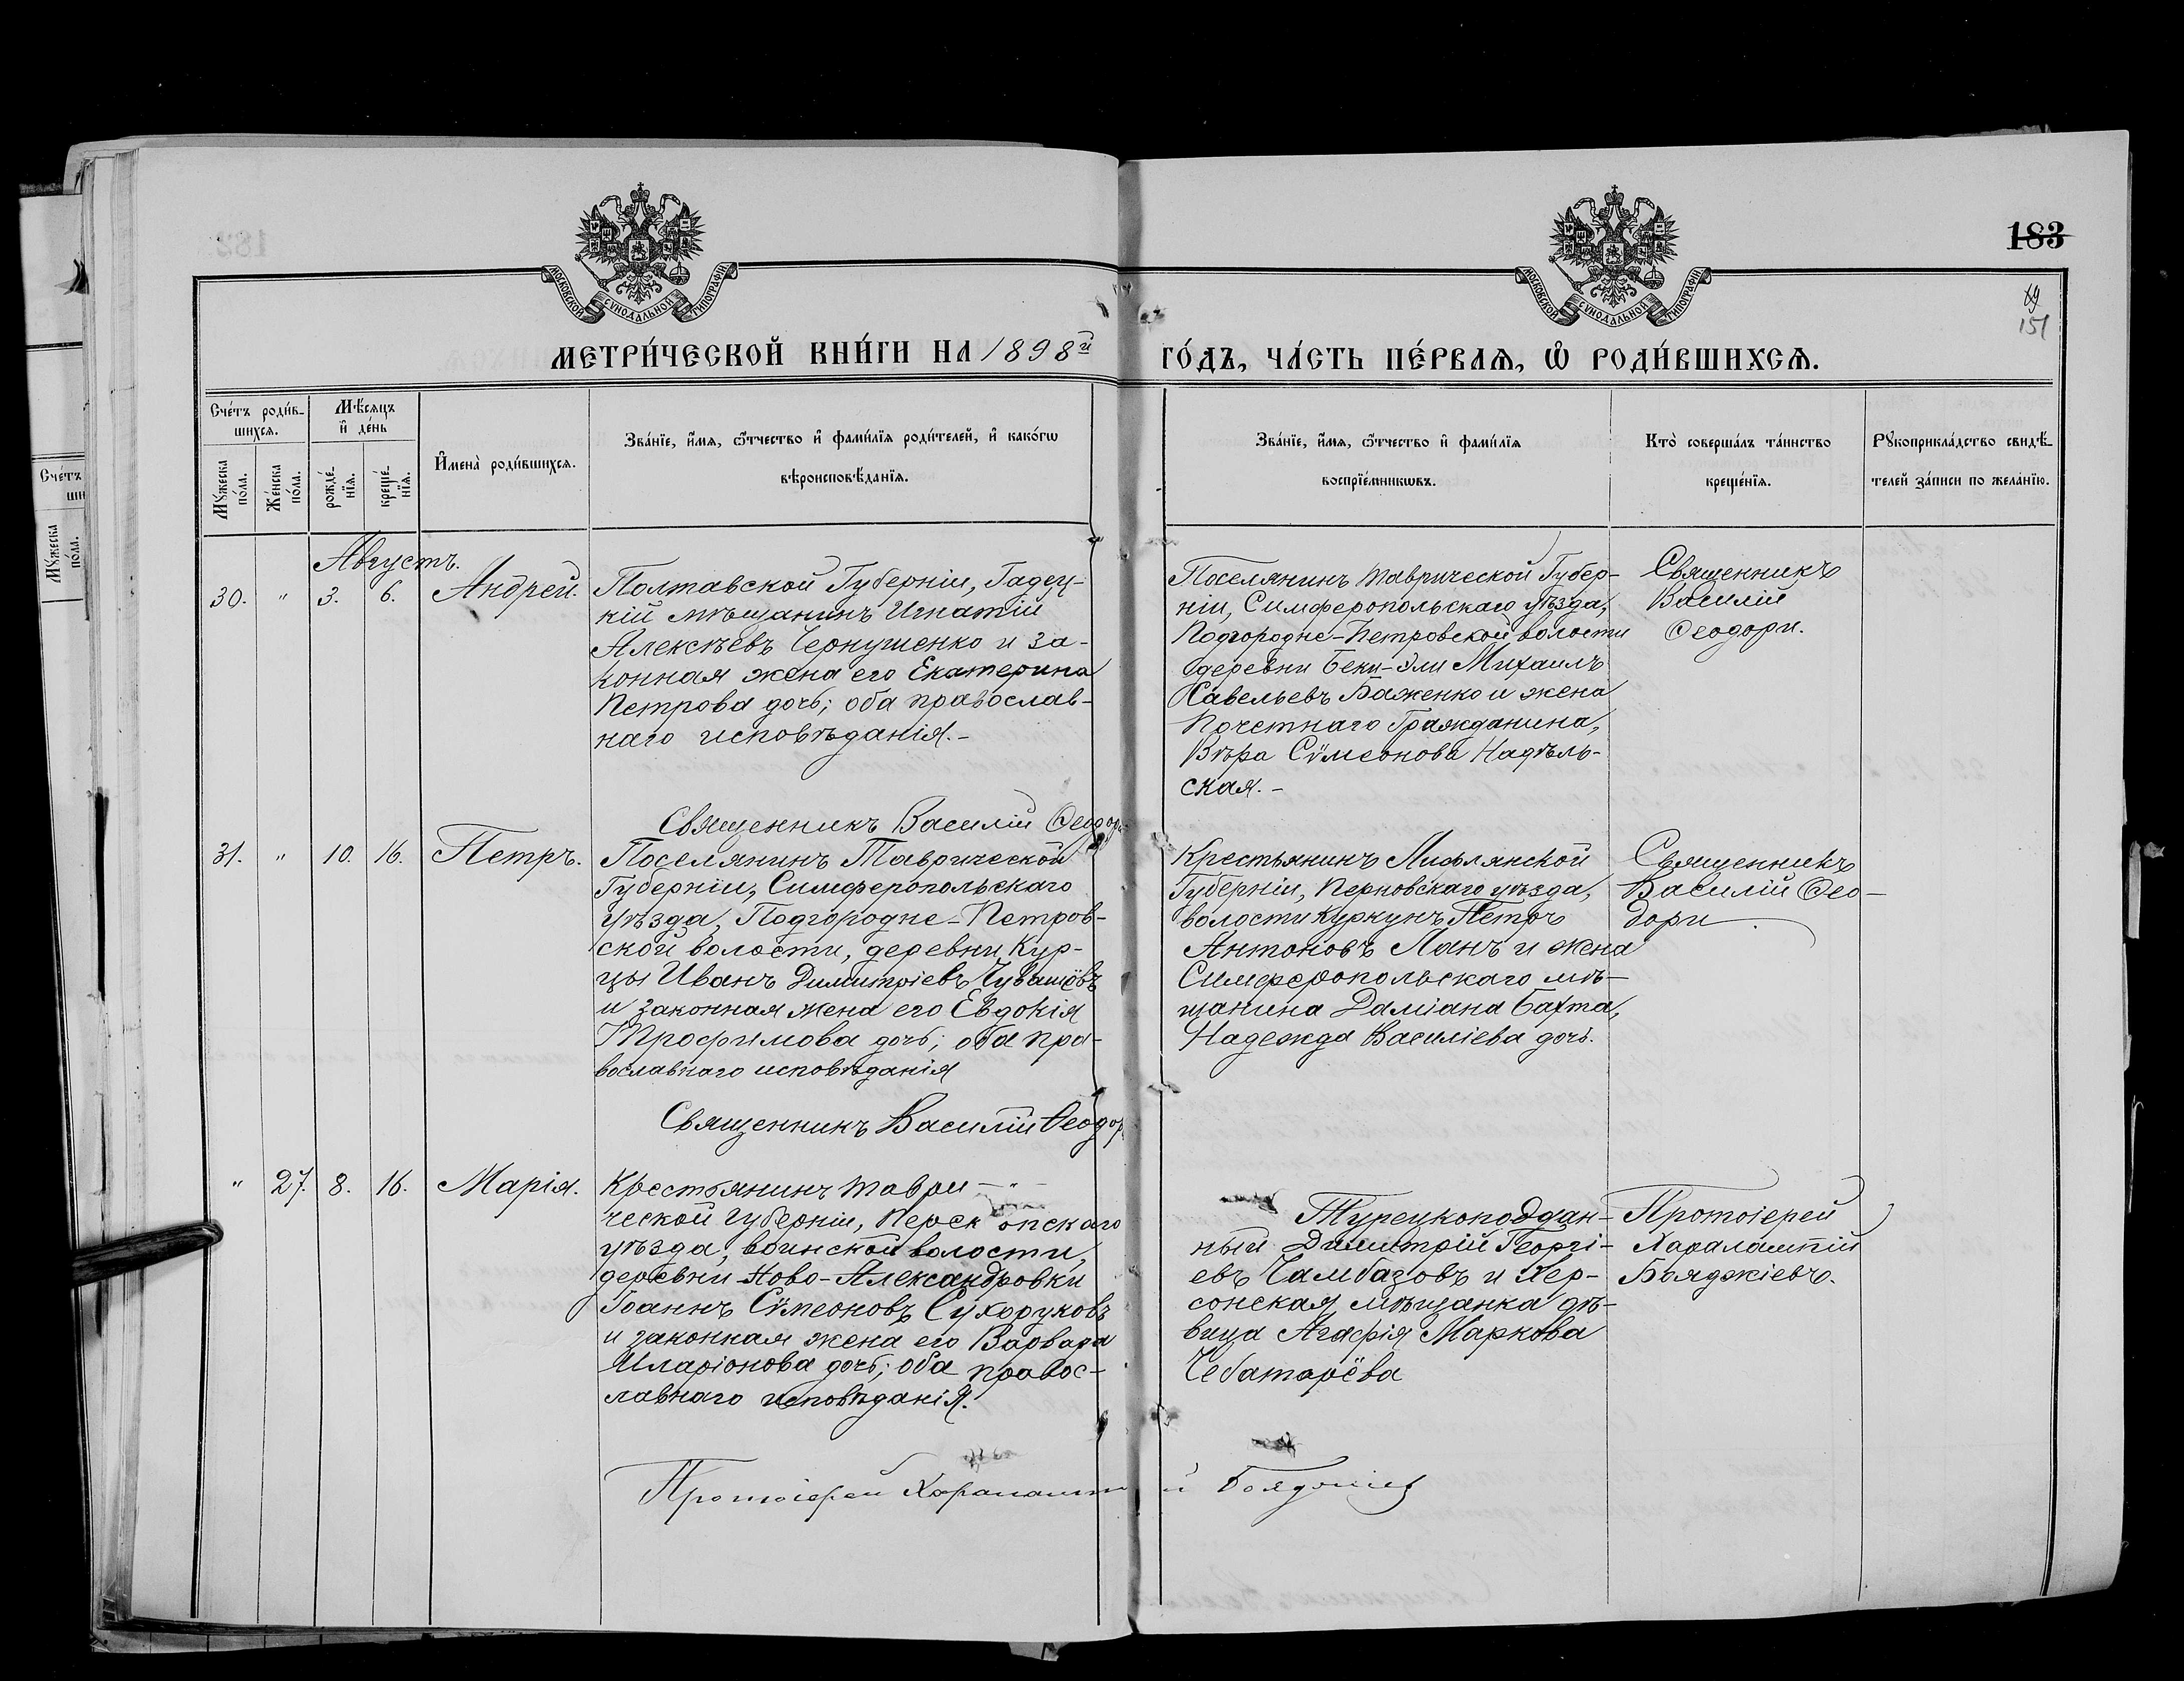 183
69
151
МОСКОВСКОЙ СѴНОДАЛЬНОЙ ТИПОГРАФІИ
МОСКОВСКОЙ СѴНОДАЛЬНОЙ ТИПОГРАФІИ
МЕТРИ́ЧЕСКОЙ КНИ́ГИ НА 1898й ГО́ДЪ, ЧА́СТЬ ПЕ́РВАѦ, Ѡ҆ РОДИ́ВШИХСѦ.
Сче́тъ роди́в-
шихсѧ.
Мѣ́сѧцъ
и҆ де́нь
Мꙋ́жеска
по́ла.
Же́нска
по́ла.
рожде́-
нїѧ.
креще́-
нїѧ.
И҆мена̀ роди́вшихсѧ.
Зва́нїе, и҆́мѧ, ѻ҆́тчество и҆ фами́лїѧ роди́телей, и҆ како́гѡ
вѣроисповѣ́данїѧ.
Зва́нїе, и҆́мѧ, ѻ҆́тчество и҆ фами́лїѧ
воспрїе́мникѡвъ.
Кто̀ соверша́лъ та́инство
креще́нїѧ.
Рꙋкоприкла́дство свидѣ́-
телей за́писи по жела́нїю.
Августъ.
30. " 3. 6. Андрей.
Полтавской Губерніи, Гадец-
кій мѣщанинъ Игнатій
Алексѣевъ Чернушенко и за-
конная жена его Екатерина
Петрова дочь; оба православ-
наго исповѣданія.-
Поселянинъ Таврической Губер-
ніи, Симферопольскаго уѣзда,
Подгородне-Петровской волости
деревни Беки-Эли Михаилъ
Савельевъ Баженко и жена
Почетнаго Гражданина,
Вѣра Сѵмеонова Надѣль-
ская.-
Священникъ
Василій
Ѳеодори.
Священникъ Василій Ѳеодори
31. " 10. 16. Петръ.
Поселянинъ Таврической
Губерніи, Симферопольскаго
уѣзда, Подгородне-Петров-
ской волости, деревни Кур-
цы Иванъ Димитріевъ Чувашовъ
и законная жена его Евдокія
Трофимова дочь; оба пра-
вославнаго исповѣданія
Крестьянинъ Лифлянской
Губерніи, Перновскаго уѣзда,
волости Куркунъ Петръ
Антоновъ Ланъ и жена
Симферопольскаго мѣ-
щанина Даміана Бахта,
Надежда Василіева дочь.
Священникъ
Василій Ѳео-
дори.
Священникъ Василій Ѳеодор
" 27. 8. 16. Марія.
Крестьянинъ Таври-
ческой губерніи, Перекопскаго
уѣзда, воинской волости,
деревни Ново-Александровки
Іоаннъ Сѵмеоновъ Сухоруковъ
и законная жена его Варвара
Иларіонова дочь; оба правос-
лавнаго исповѣданія.
Турецкоподдан-
ный Димитрій Георгі-
евъ Чамбазовъ и Хер-
сонская мѣщанка дѣ-
вица Агафія Маркова
Чеботарёва
Протоіерей
Харалампій
Бояджіевъ.
Протоіерей Харалампій Бояджіев
Сче́тъ
ши
Мꙋ́жеска
по́ла.